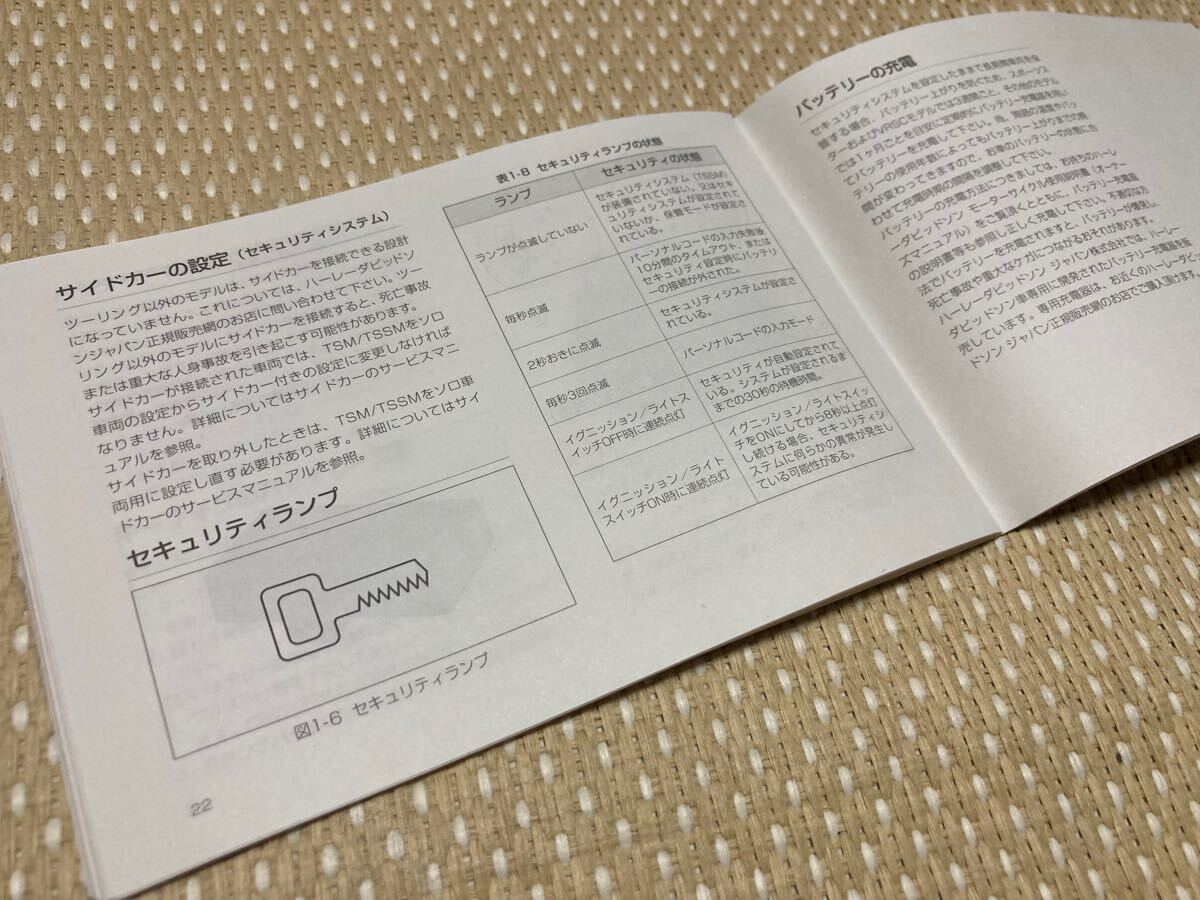 サイドカーの設定(セキュリティシステム)
ツーリング以外のモデルは、サイドカーを接続できる設計
になっていません。これについては、ハーレーダビッドソ
ンジャパン正規販売網のお店に問い合わせて下さい。ツー
リング以外のモデルにサイドカーを接続すると、死亡事故
または重大な人身事故を引き起こす可能性があります。
サイドカーが接続された車両では、TSM/TSSMをソロ
車両の設定からサイドカー付きの設定に変更しなければ
なりません。詳細についてはサイドカーのサービスマニ
ュアルを参照。
サイドカーを取り外したときは、TSM/TSSMをソロ車
両用に設定し直す必要があります。詳細についてはサイ
ドカーのサービスマニュアルを参照。
セキュリティランプ
図1-6 セキュリティランプ
22
表1-8 セキュリティランプの状態
ランプ
セキュリティの状態
ランプが点滅していない
セキュリティシステム(TSSM)
が装備されていない。又はセキ
ュリティシステムが設定されて
いないか、保管モードが設定さ
れている。
毎秒点滅
パーソナルコードの入力失敗後
10分間のタイムアウト、または
セキュリティ設定時にバッテリ
ーの接続が外された。
2秒おきに点滅
セキュリティシステムが設定さ
れている。
毎秒3回点滅
パーソナルコードの入力モード
イグニッション/ライトスイ
ッチOFF時に連続点灯
セキュリティが自動設定されて
いる。システムが設定されるま
までの30秒の待機時間。
イグニッション/ライト
スイッチON時に連続点灯
イグニッション/ライトスイッ
チをONにしてから8秒以上点灯
し続ける場合、セキュリティシ
ステムに何らかの異常が発生し
ている可能性がある。
バッテリーの充電
セキュリティシステムを設定したままで長期間車両を保
管する場合、バッテリー上がりを防ぐため、スポーツス
ターおよびVRSCモデルでは3週間ごと、その他のモデル
では1ヶ月ごとを目安に定期的にバッテリー充電器を用い
てバッテリーを充電して下さい。尚、周囲の温度やバッ
テリーの使用年数によってもバッテリー上がりまでの期
間が変わってきますので、お車のバッテリーの状態に合
わせて充電時間の間隔を調整して下さい。
バッテリーの充電方法につきましては、お持ちのハーレ
ーダビッドソン モーターサイクル使用説明書(オーナー
ズマニュアル)をご覧頂くとともに、バッテリー充電器
の説明書等も参照し正しく充電して下さい。不適切な方
法でバッテリーを充電されますと、バッテリーが爆発し、
死亡事故や重大なケガにつながるおそれがあります。
ハーレーダビッドソン ジャパン株式会社では、ハーレー
ダビッドソン車専用に開発されたバッテリー充電器を販
売しています。専用充電器は、お近くのハーレーダビッ
ドソン ジャパン正規販売網のお店でご購入頂けます。